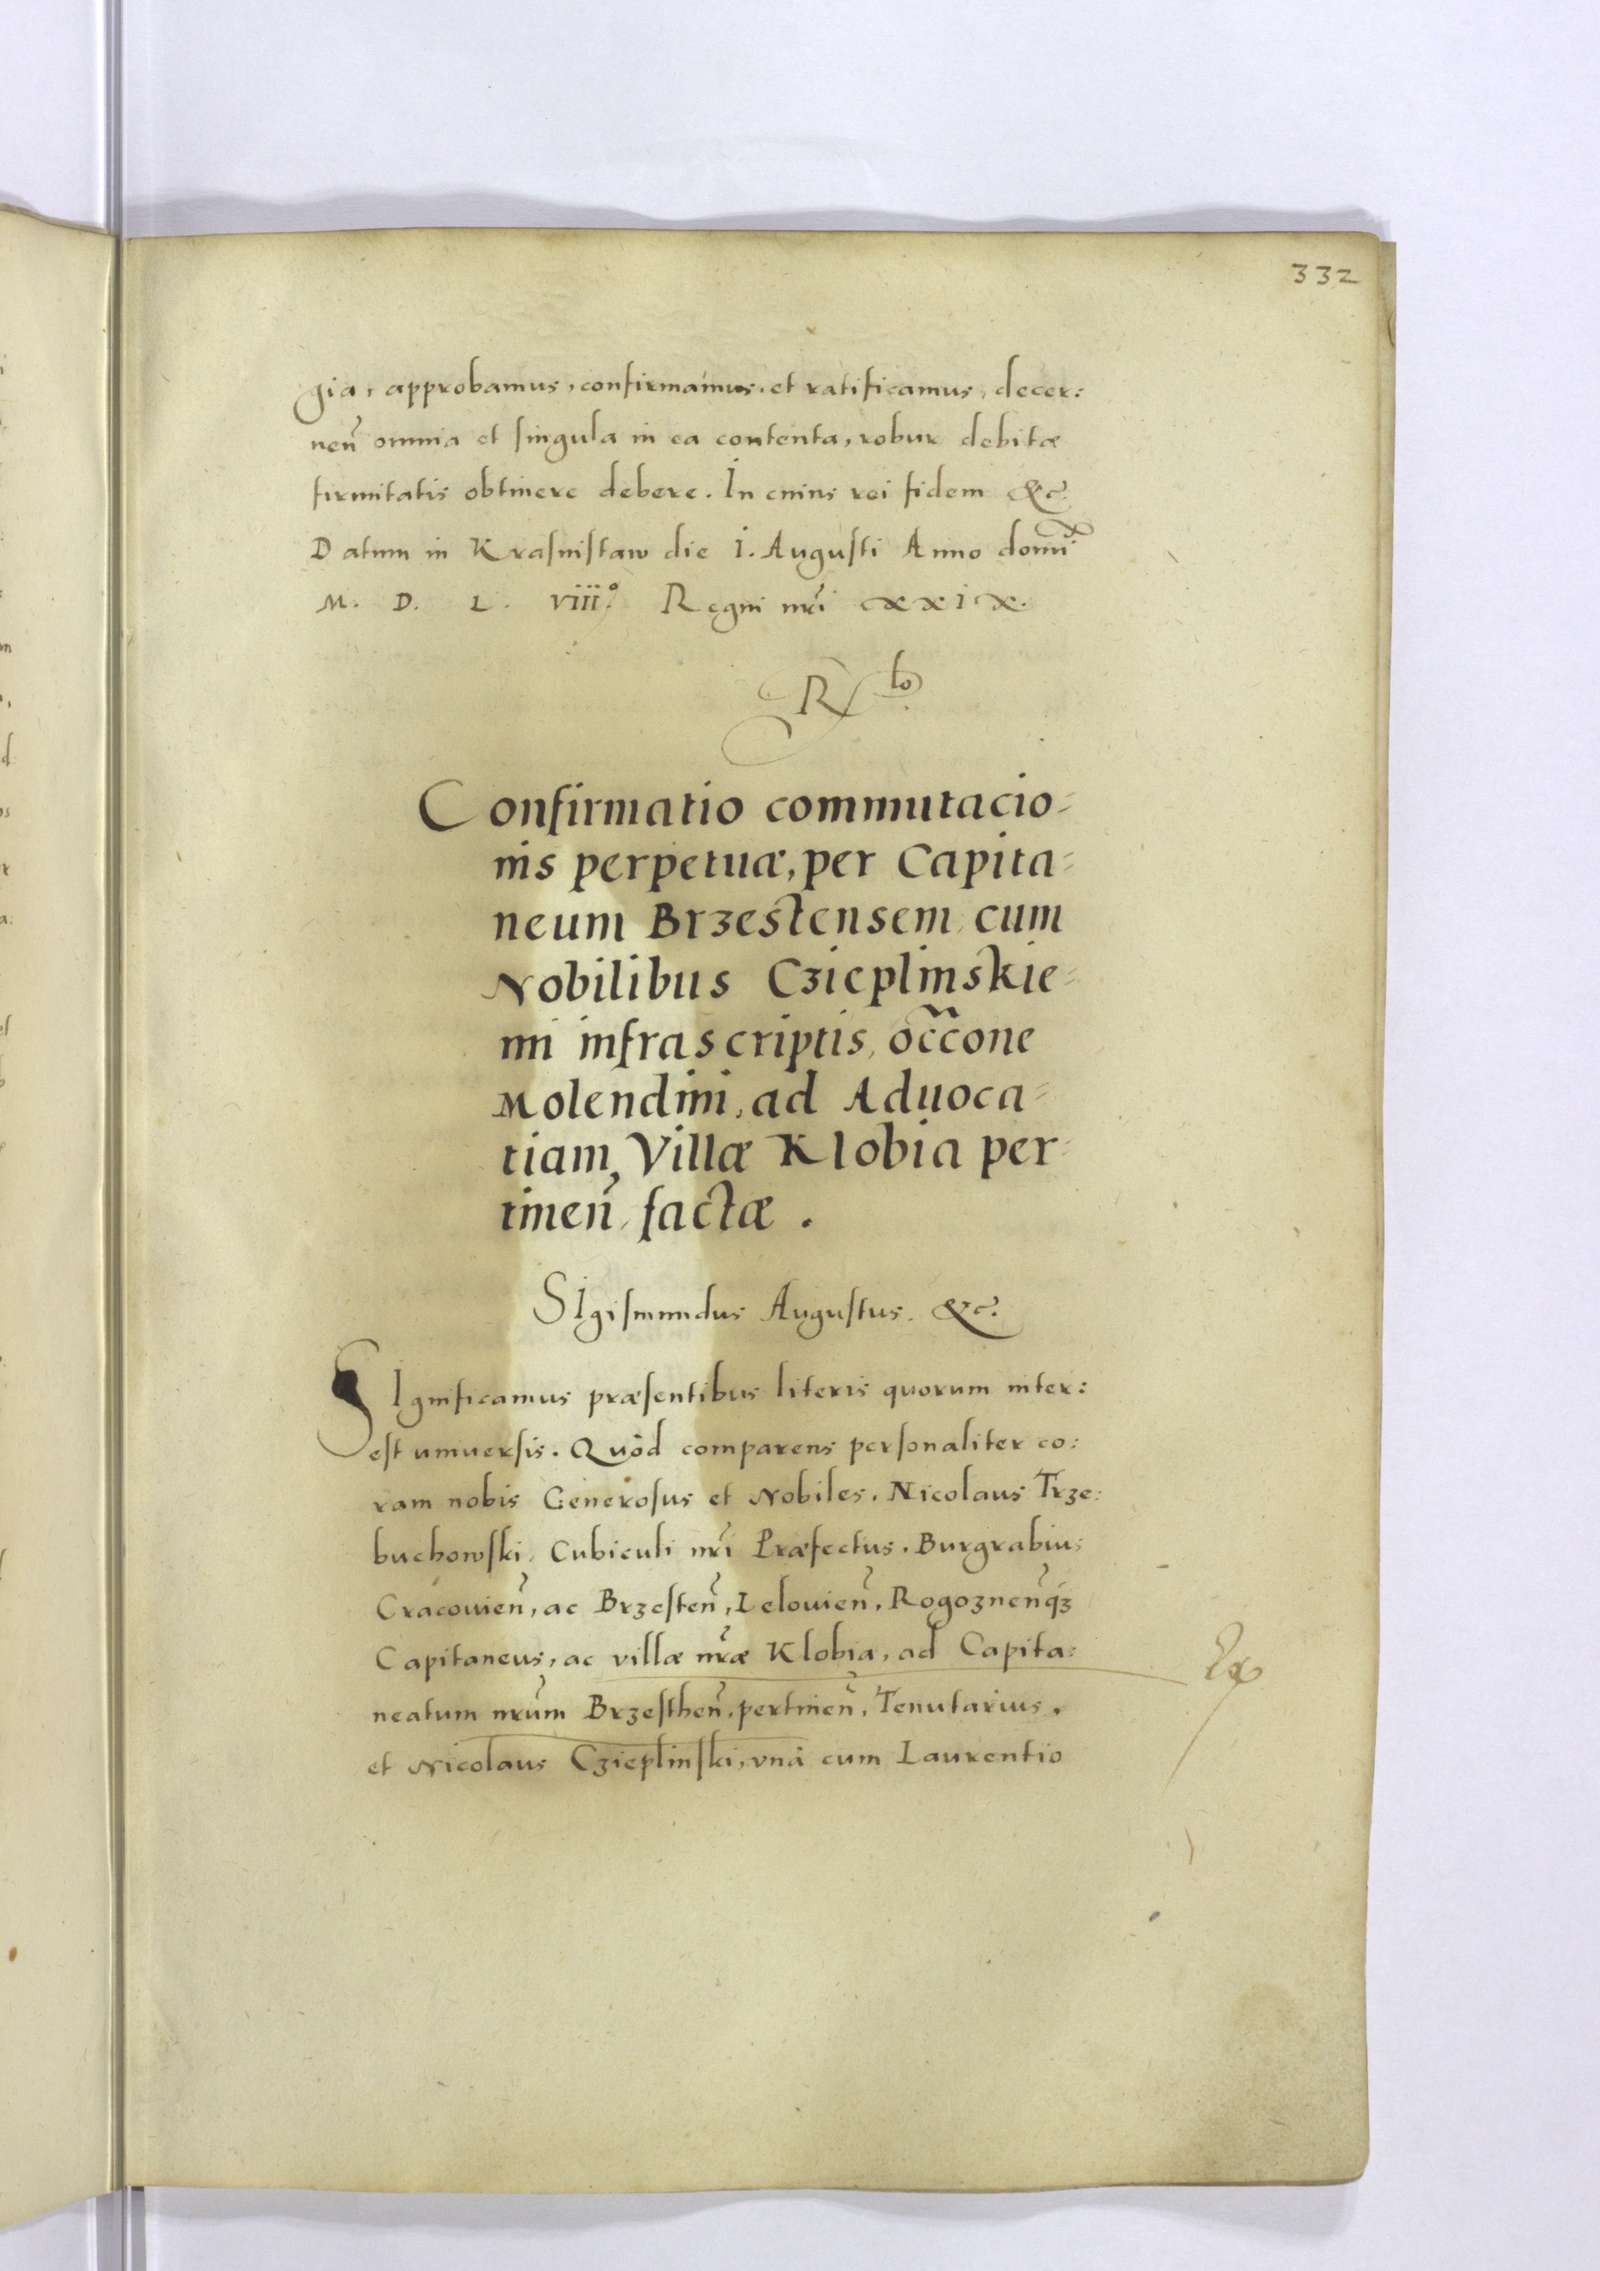 332
gia, approbamus, confirmamus, et ratificamus, decer:
nen̄ omnia et singula in ea contenta, robur debitæ
firmitatis obtinere debere. In cuius rei fidem &c.
Datum in Krasnistaw die I. Augusti Anno domi
M. D. L. VIII.° Regni nr̄i XXIX.
Confirmatio commutacio-
nis perpetuæ, per Capita-
neum Brzestensem, cum
Nobilibus Czieplinskie-
mi infrascriptis, occ̄one
Molendini, ad Aduoca-
tiam Villæ Klobia per-
tinen̄, factæ.
SIgismundus Augustus. &c.
SIgnificamus præsentibus literis quorum inter:
est uniuersis. Quòd comparens personaliter co:
ram nobis Generosus et Nobiles, Nicolaus Trze:
buchowski, Cubiculi nr̄i Præfectus, Burgrabius
Cracouien̄, ac Brzesten̄, Lelouien̄, Rogoznen̄qꝫ
Capitaneus, ac villæ nr̄æ Klobia, ad Capita:
neatum nr̄um Brzesthen̄, pertinen̄, Tenutarius,
et Nicolaus Czieplinski, vnà cum Laurentio